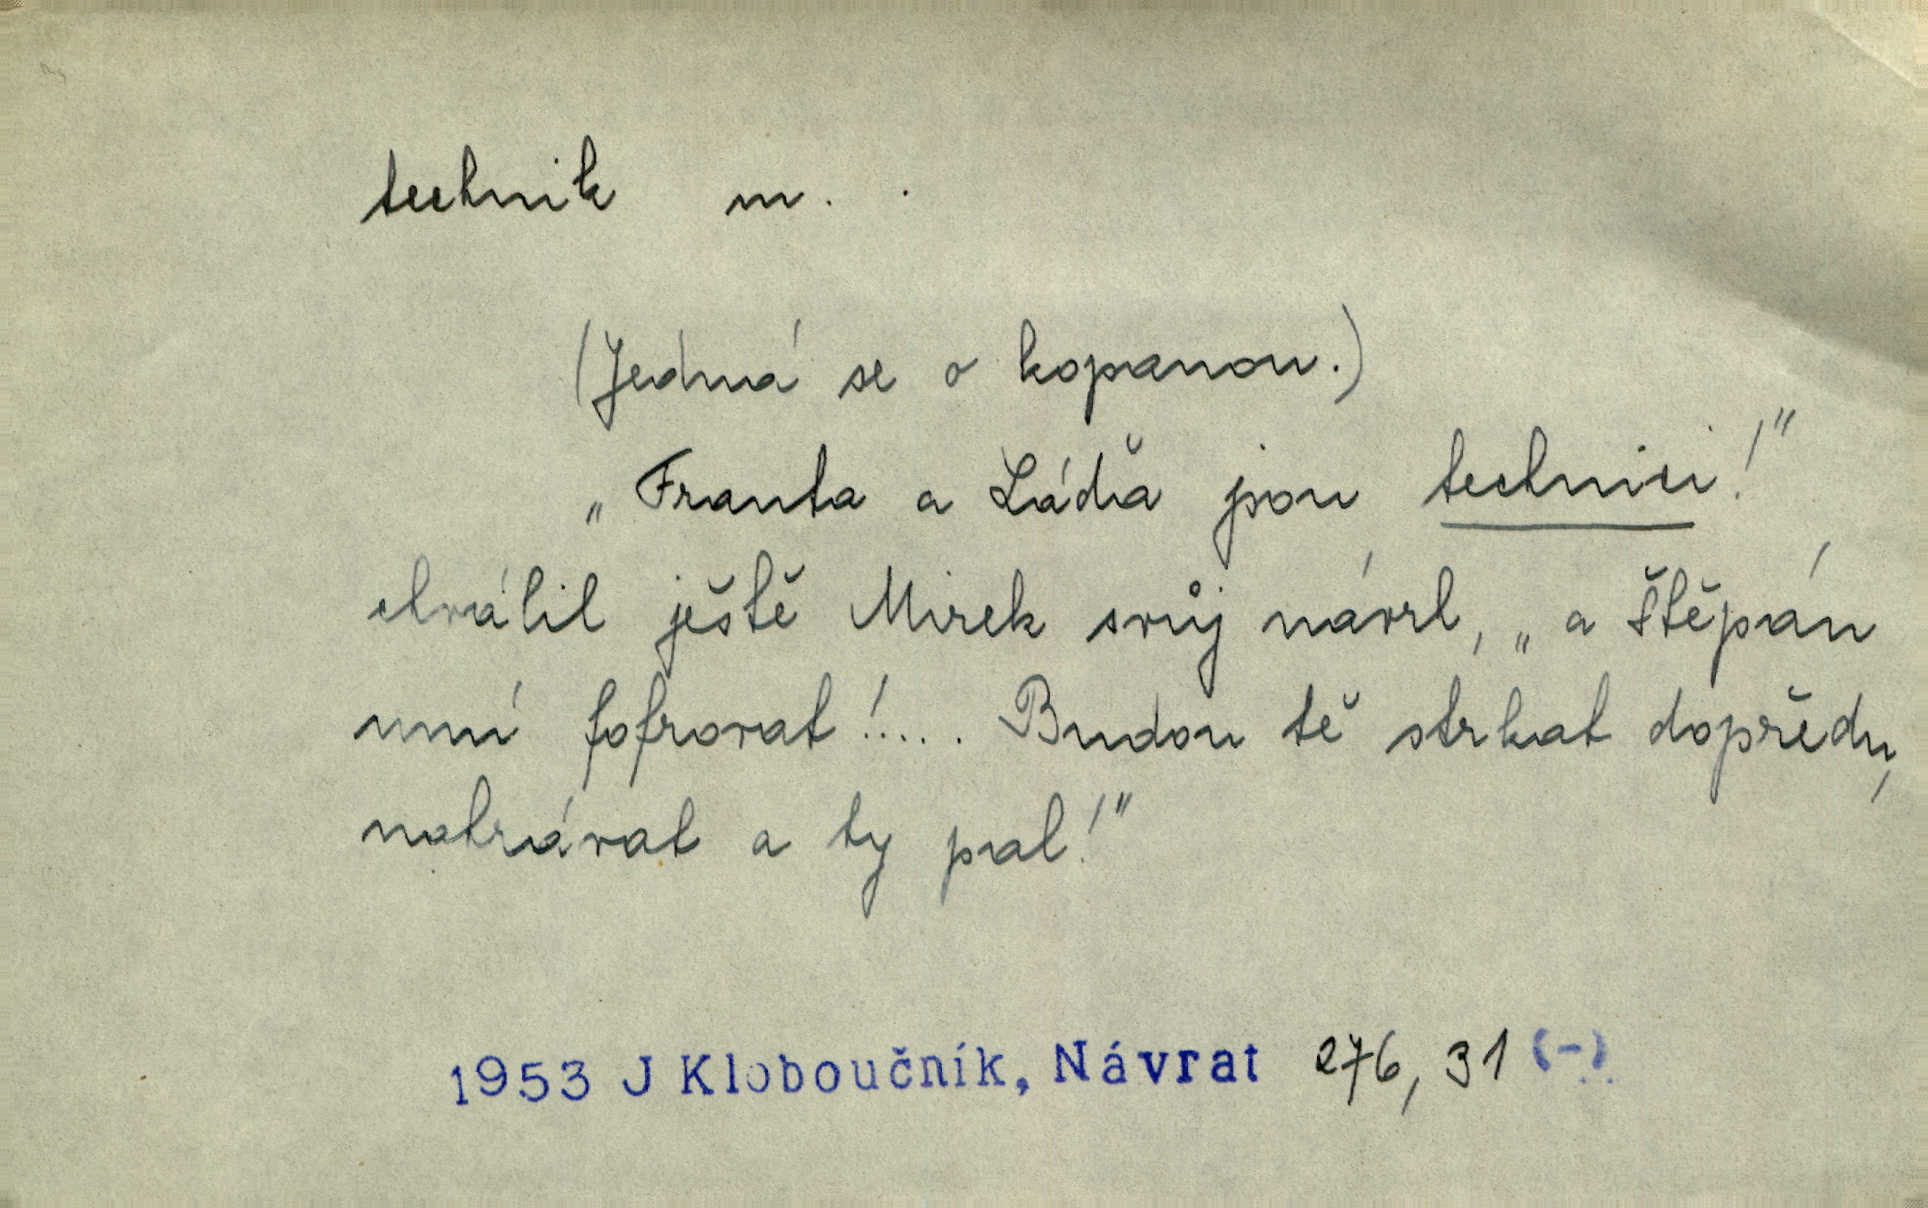 technik m.
(Jedná se o kopanou.)
„Franta a Láďa jsou technici!"
chválil ještě Mirek svůj návrh, „a Štěpán
umí fofrovat!.... Budou tě strkat dopředu,
nahrávat a ty pal!"
1953 J Kloboučník, Návrat 276, 31 (-)